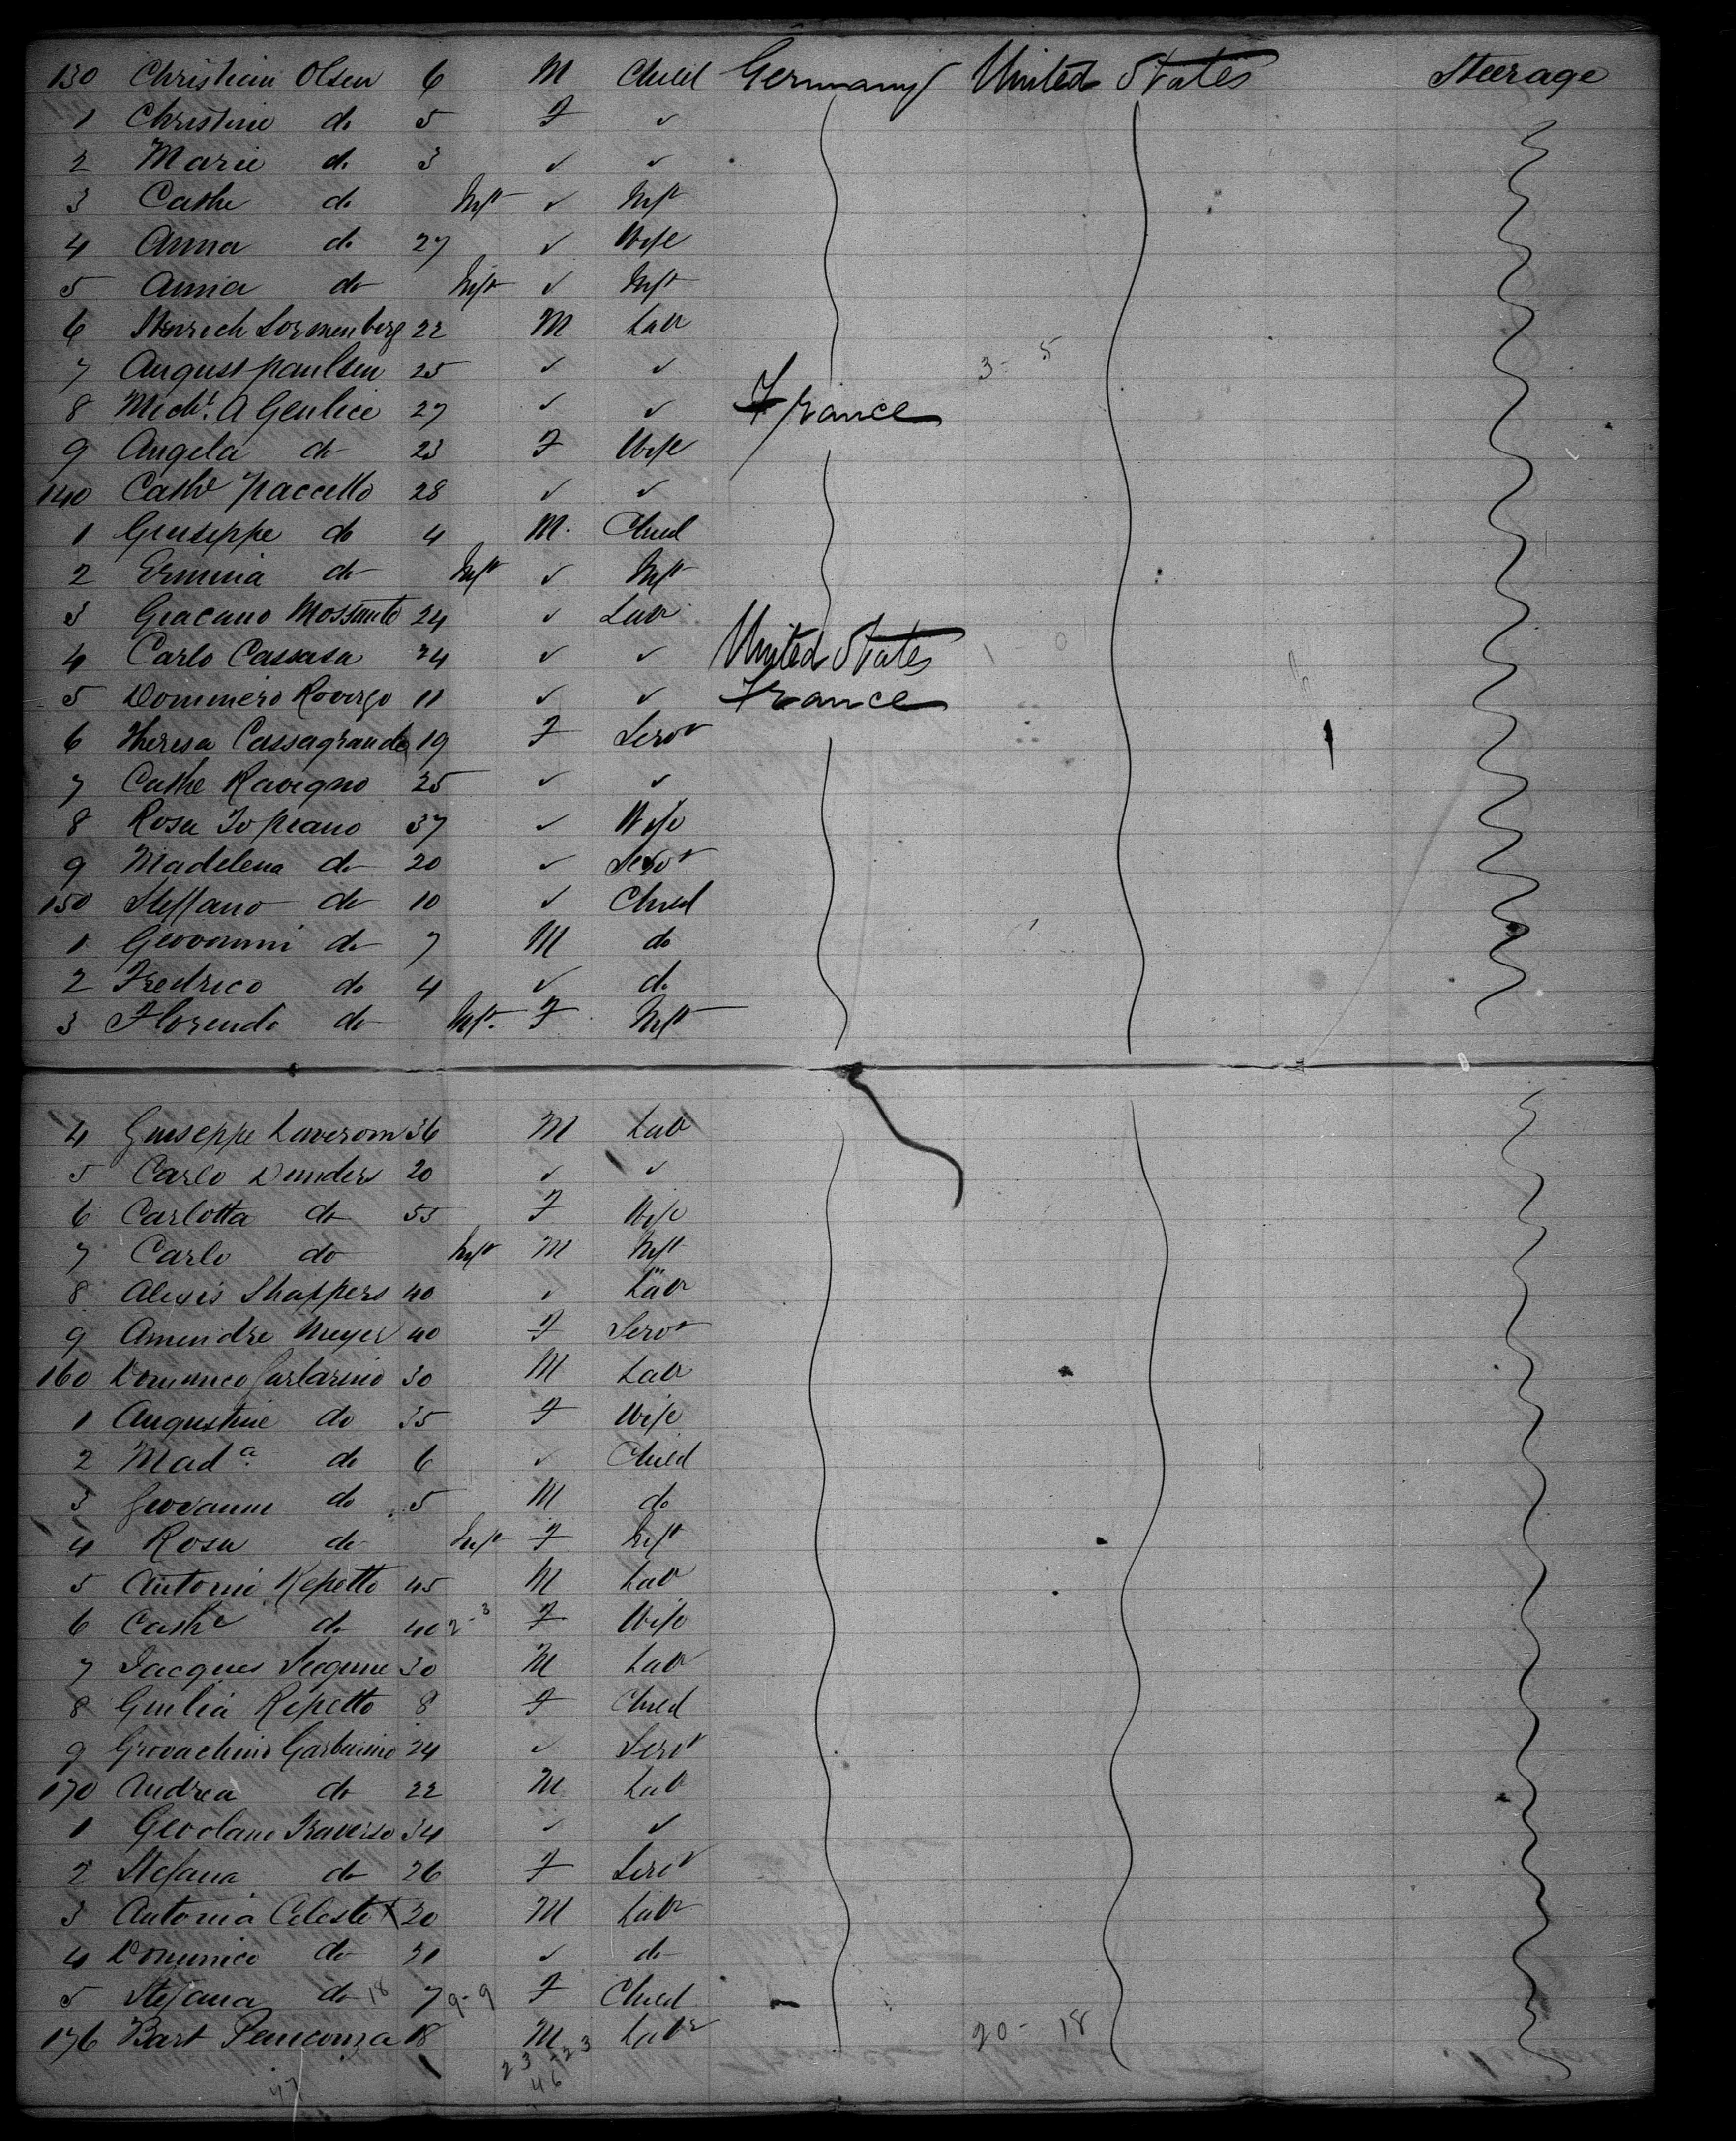 130 Christian Olsen 6 M Child Germany United States Steerage
1 Christine do 5 F ✓
2 Marie do 3 ✓ ✓
3 Cathe do Inft ✓ Inft
4 Anna do 27 ✓ Wife
5 Anna do Inft ✓ Inft
6 Henrich 22 M Labr
7 August Paulsen 25 ✓ ✓ 3- 5
8 Michl. A 27 ✓ ✓ France
9 Angela do 23 F Wife
140 Cathe 28 ✓ ✓
1 Giuseppe do 4 M. Child
2 Erminia do Inft ✓ Inft
3 Giacano Mossanto 24 ✓ Labr
4 Carlo Cassasa 24 ✓ ✓ United States 1 - 0
5 Rovergo 11 ✓ ✓ France
6 Theresa Cassagranda 19 F Servt
7 Cathe Ravegno 25 ✓ ✓
8 Rosa 37 ✓ Wife
9 Madelena do 20 ✓ Servt
150 Steffano do 10 ✓ Child
1 Geovanni do 7 M do
2 Fredrico do 4 ✓ do
3 Florendo do Inft. F Inft
4 Guiseppe 36 M Labr
5 Carlo 20 ✓ ✓
6 Carlotta do 55 F Wife
7 Carlo do Inft M Inft
8 Alexis Shappers 40 ✓ Labr
9 Amendre Meyer 40 F Servt
160 Domenico Garbarino 30 M Labr
1 Augustine do 35 F Wife
2 Mada. do 6 ✓ Child
3 Geovanni do 5 M do
4 Rosa do Inft F Inft
5 Antonio Repetto 45 M Labr
6 Cathe do 40 2-3 F Wife
7 Jacques 30 M Labr
8 Guilia Repetto 8 F Child
9 Garbarino 24 ✓ Servt
170 Andrea do 22 M Labr
1 Traverso 34 ✓ ✓
2 Stefana do 26 F Servt
3 Antonia Celeste X 30 M Labr
4 Domenico do ✓ do
5 Stefana do 18 7 9-9 F Child
176 Bart 18 M Labr 20- 18
23 -23
46
47